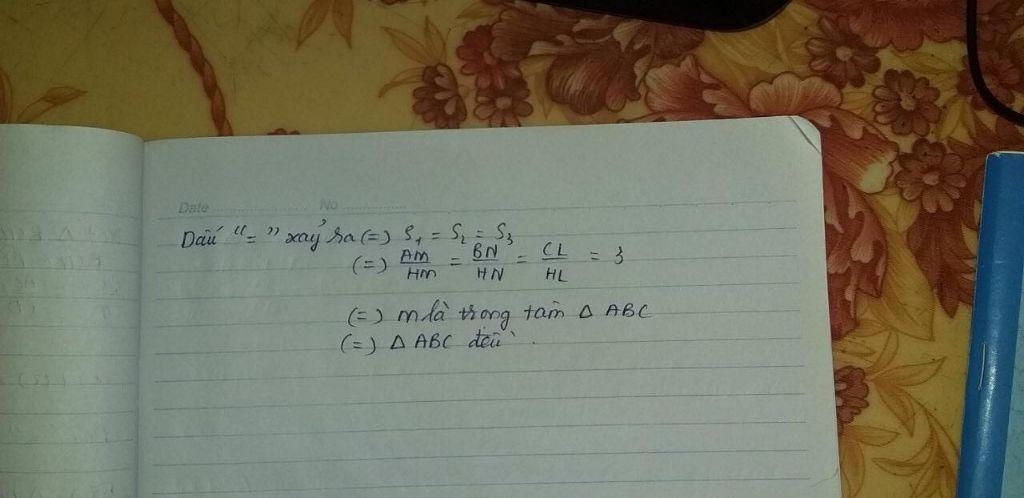 Date No
Dấu "=" xảy ra (=) S₁ = S₂ = S₃
(=) AM/HM = BN/HN = CL/HL = 3
(=) M là trọng tâm Δ ABC
(=) Δ ABC đều.